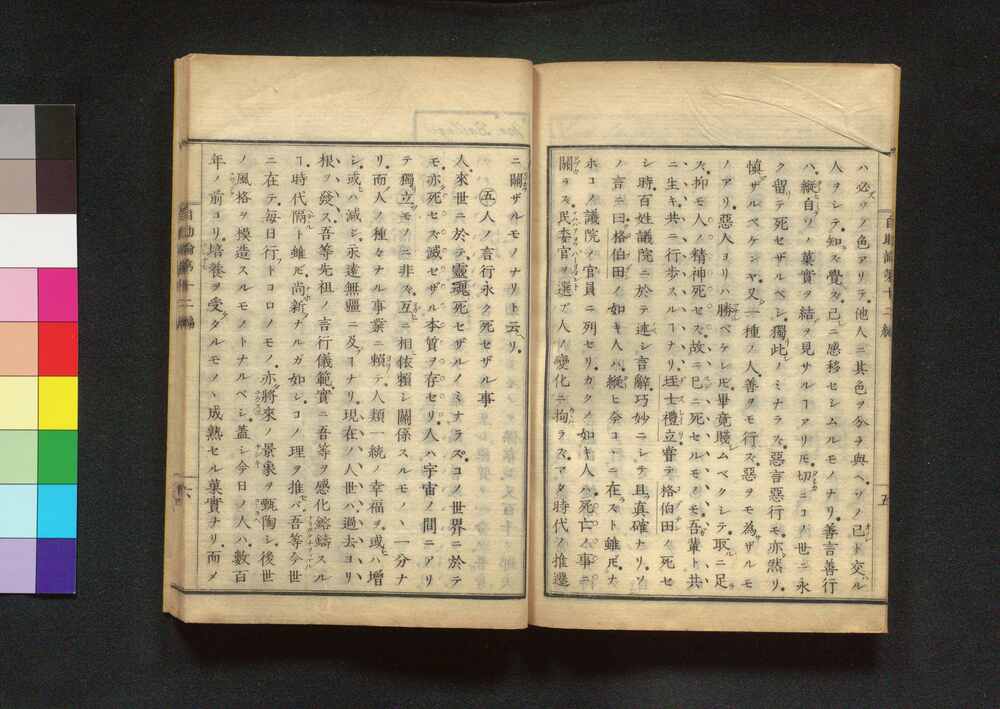 自助論第十二編
五
ハ必ソノ色アリテ他人ニ其色ヲ分ヲ與ベソノ已ト交ル
人ヲシテ知ズ覺ズ己ニ感移セシムルモノナリ善言善行
ハ縱自ソノ菓實ヲ結ヲ見サルヿアリモ切ニコノ世ニ永
ク留テ死セザルベシ獨此ノミナラズ惡言惡行モ亦然リ
愼ザルベケンヤ又一種ノ人善ヲモ行ズ惡ヲモ爲ザルモ
ノアリ惡人ヨリハ勝ベケレ𪜈畢竟賤ムベクシテ取ニ足
ズ抑モ人ノ精神死セズ故ニ已ニ死セルモノモ吾輩ト共
ニ生キ共ニ行歩スルヿナリ
シ時百姓議院ニ於テ述シ言辭巧妙ニシテ且眞確ナリソ
ノ言ニ曰格伯田ノ如キ人ハ縱ヒ今コヽニ在ズト雖𪜈ナ
ホコノ議院ノ官員ニ列セリカクノ如キ人ハ死亡ノ事ニ
關ラズ民委官ヲ選ブ人ノ變化ニ拘ラズマタ時代ノ推遷
ニ關ザルモノナリト云リ
五 人ノ言行永ク死セザル事
人來世ニ於テ靈魂死セザルノミナラズコノ世界ニ於テ
モ亦死セズ滅セザル本質ヲ存セリ人ハ宇宙ノ間ニアリ
テ獨立モノニ非ズ互ニ相依賴シ關係スルモノヽ一分ナ
リ而人ノ種々ナル事業ニ賴テ人類一統ノ幸福ヲ或ハ增
シ或ハ減シ永遠無疆ニ及ブヿナリ現在ノ人世ハ過去ヨリ
根ヲ發ス吾等先祖ノ言行儀範實ニ吾等ヲ感化鎔鑄スル
ヿ時代隔ト雖𪜈尚新ナルガ如シコノ理ヲ推バ吾等今世
ニ在テ每日行トコロノモノ亦將來ノ景象ヲ甄陶シ後世
ノ風格ヲ模造スルモノトナルベシ蓋シ今日ノ人ハ數百
年ノ前ヨリ培養ヲ受タルモノヽ成熟セル菓實ナリ而メ
自助論第十二編
六